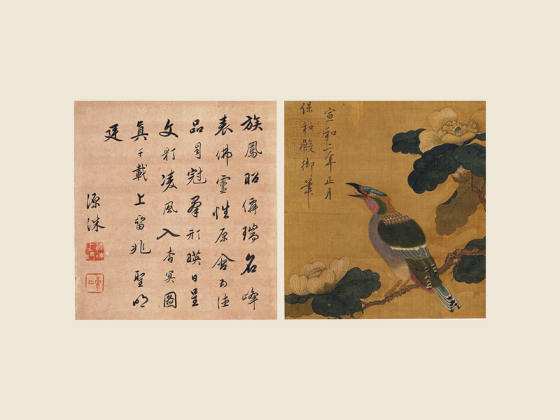 宣和二年正月
保和殿御筆
族鳳昭儕瑞名峰
表佛靈性原含五德
品自冠羣形暎日呈
文彩凌風入杳冥圖
真千載上留兆聖明
廷
源洙